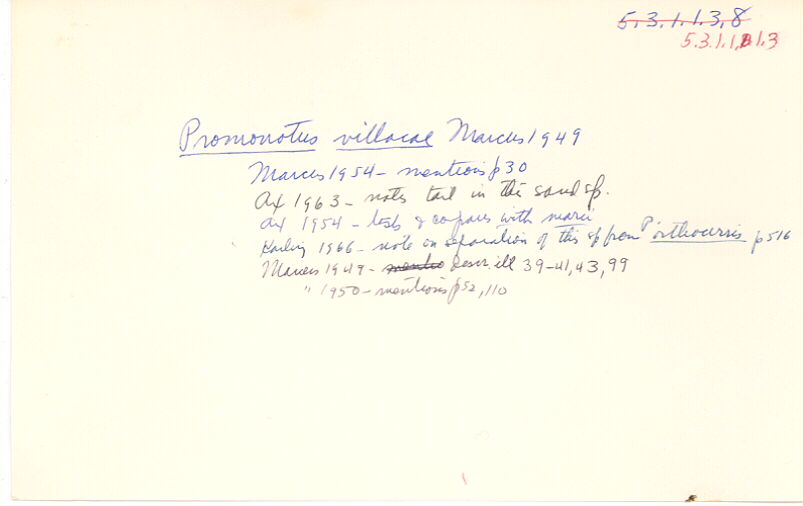 5.3.1.1.3.8
5.3.1.1.1.3
Promonotus villacae Marcus 1949
Marcus 1954 - mentions p 30
Ax 1963 - notes tail in this sand sp.
Ax 1954 - lists & compares with marci
Karling 1966 - note on separation of this sp from P. orthocirris p 516
Marcus 1949 - mentio descr. ill 39-41, 43, 99
" 1950 - mentions p 52, 110